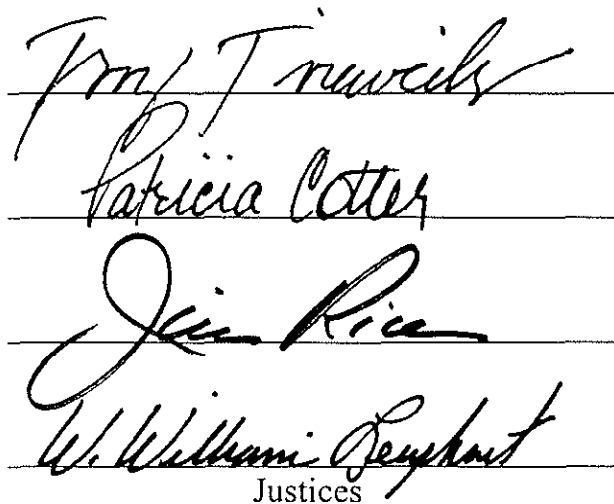 Terry Trieweiler
Patricia Cotter
Jim Rice
W. William Leaphart
Justices